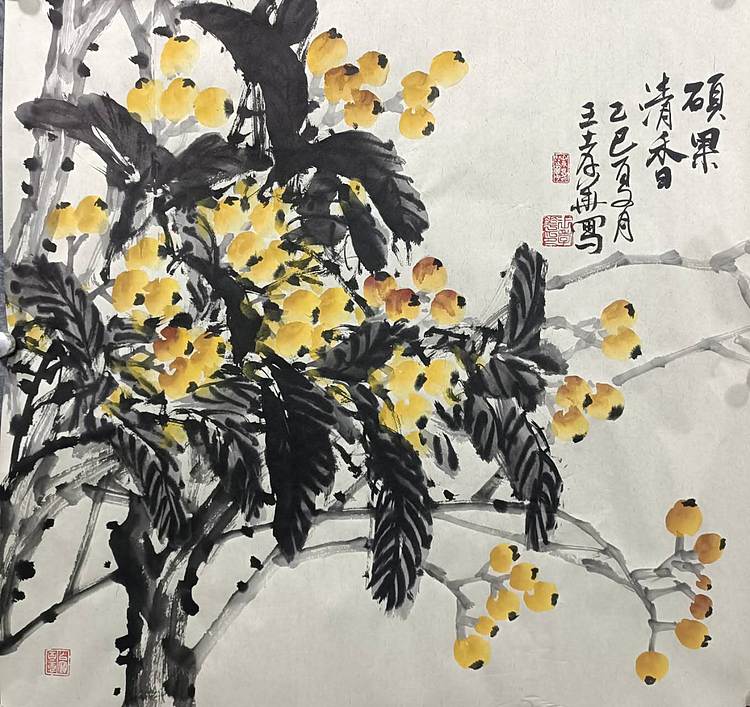 硕果
清香
乙巳夏月
王孝军写